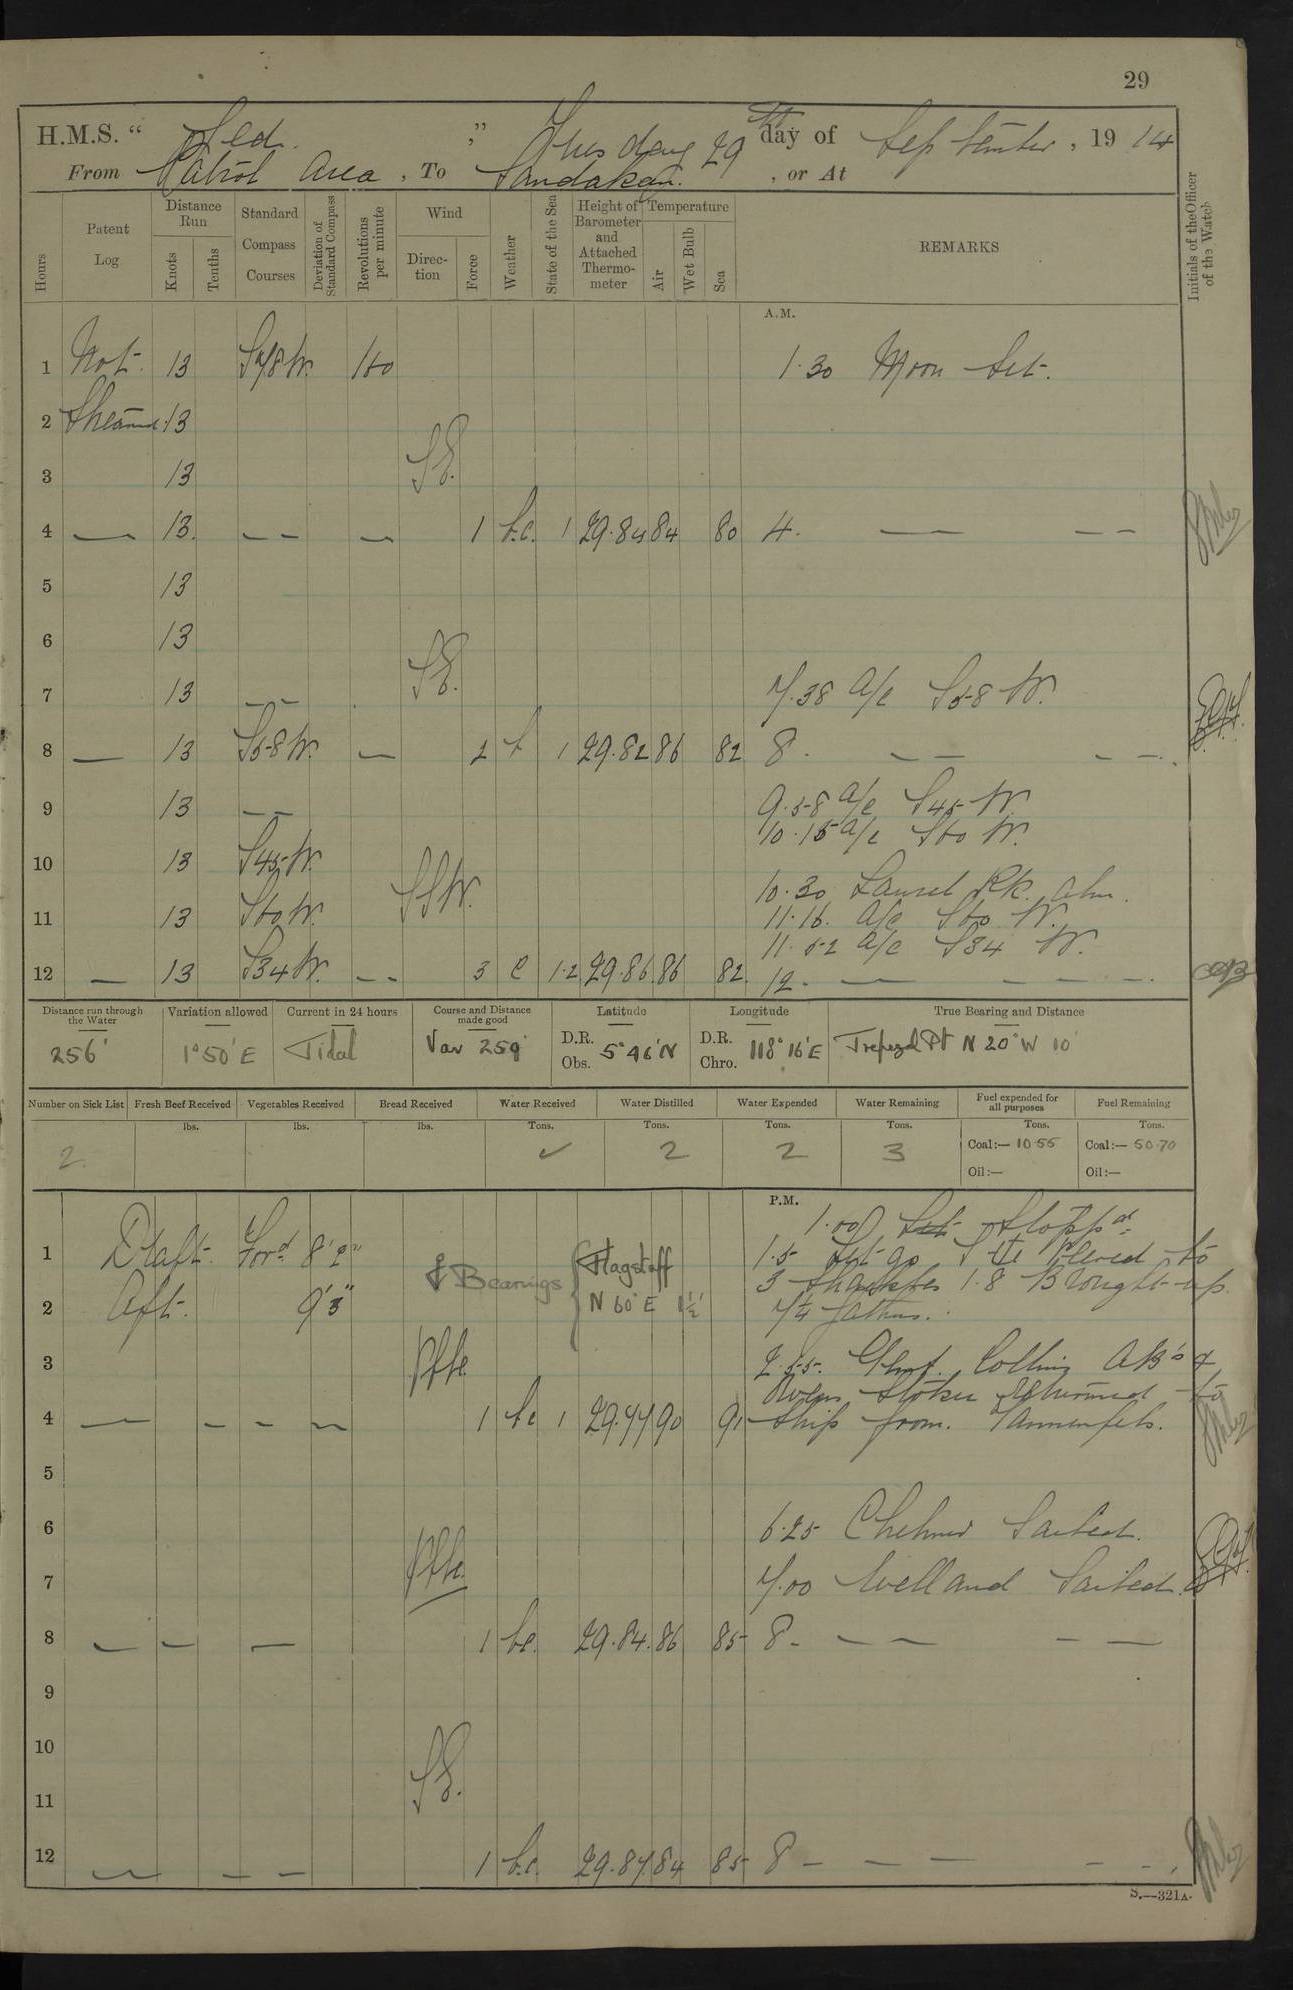 29
H.M.S. " Jed. " Tuesday 29th day of September, 1914
From Patrol Area, To Sandakan. , or At
Hours
Patent Log
Distance Run
Knots
Tenths
Standard Compass Courses
Deviation of Standard Compass
Revolutions per minute
Wind
Direction
Force
Weather
State of the Sea
Height of Barometer and Attached Thermometer
Temperature
Air
Wet Bulb
Sea
REMARKS
Initials of the Officer of the Watch
A.M.
1 Not 13 160 1.30 Moon Set.
2 Streamed 13
3 13 SE.
4 — 13 — — — 1 b.c. 1 29.84 84 80 4. — — —
5 13
6 13
7 13 — — SE. 7.38 a/c S58W.
8 — 13 S58W. — 2 1 29.82 86 82 8. — — — —
9 13 — — 9.58 a/c S45W
10.15 a/c S60W.
10 13 S45W.
SSW. 10.30 Laurel Rk. abm.
11 13 S60W. 11.16. a/c S60 W.
11.52 a/c S34 W.
12 — 13 S34W. — — 3 c 1.2 29.86 86 82. 12. — — — —
Distance run through the Water
Variation allowed
Current in 24 hours
Course and Distance made good
Latitude
Longitude
True Bearing and Distance
256' 1°50'E Tidal Var 259' D.R. Obs. 5°46'N D.R. Chro. 118°16'E N 20°W 10'
Number on Sick List
Fresh Beef Received
Vegetables Received
Bread Received
Water Received
Water Distilled
Water Expended
Water Remaining
Fuel expended for all purposes
Fuel Remaining
lbs. lbs. lbs. Tons. Tons. Tons. Tons. Tons. Tons.
2 ✓ 2 2 3 Coal:— 10.55 Coal:— 50.70
Oil:— Oil:—
P.M.
1.00 Stoppd.
1 Draft. Ford 8'2" Bearings Flagstaff 1.5 Let go Veered to
3 shackles 1.8 Brought up
2 Aft. 9'3" N 60°E 1½' 7¼ fathms.
3 2.55. Collins AB's &
Stoker returned to
4 — — — — 1 bc 1 29.77 90 91 ship from. Tannenfels.
5
6 6.25 Chelmer Sailed.
7 7.00 Welland Sailed.
8 — — — 1 bc. 29.84. 86 85 8 — — — — —
9
10
SE.
11
12 — — — 1 b.c. 29.87 84 85 8 — — — — —
S.—321A.